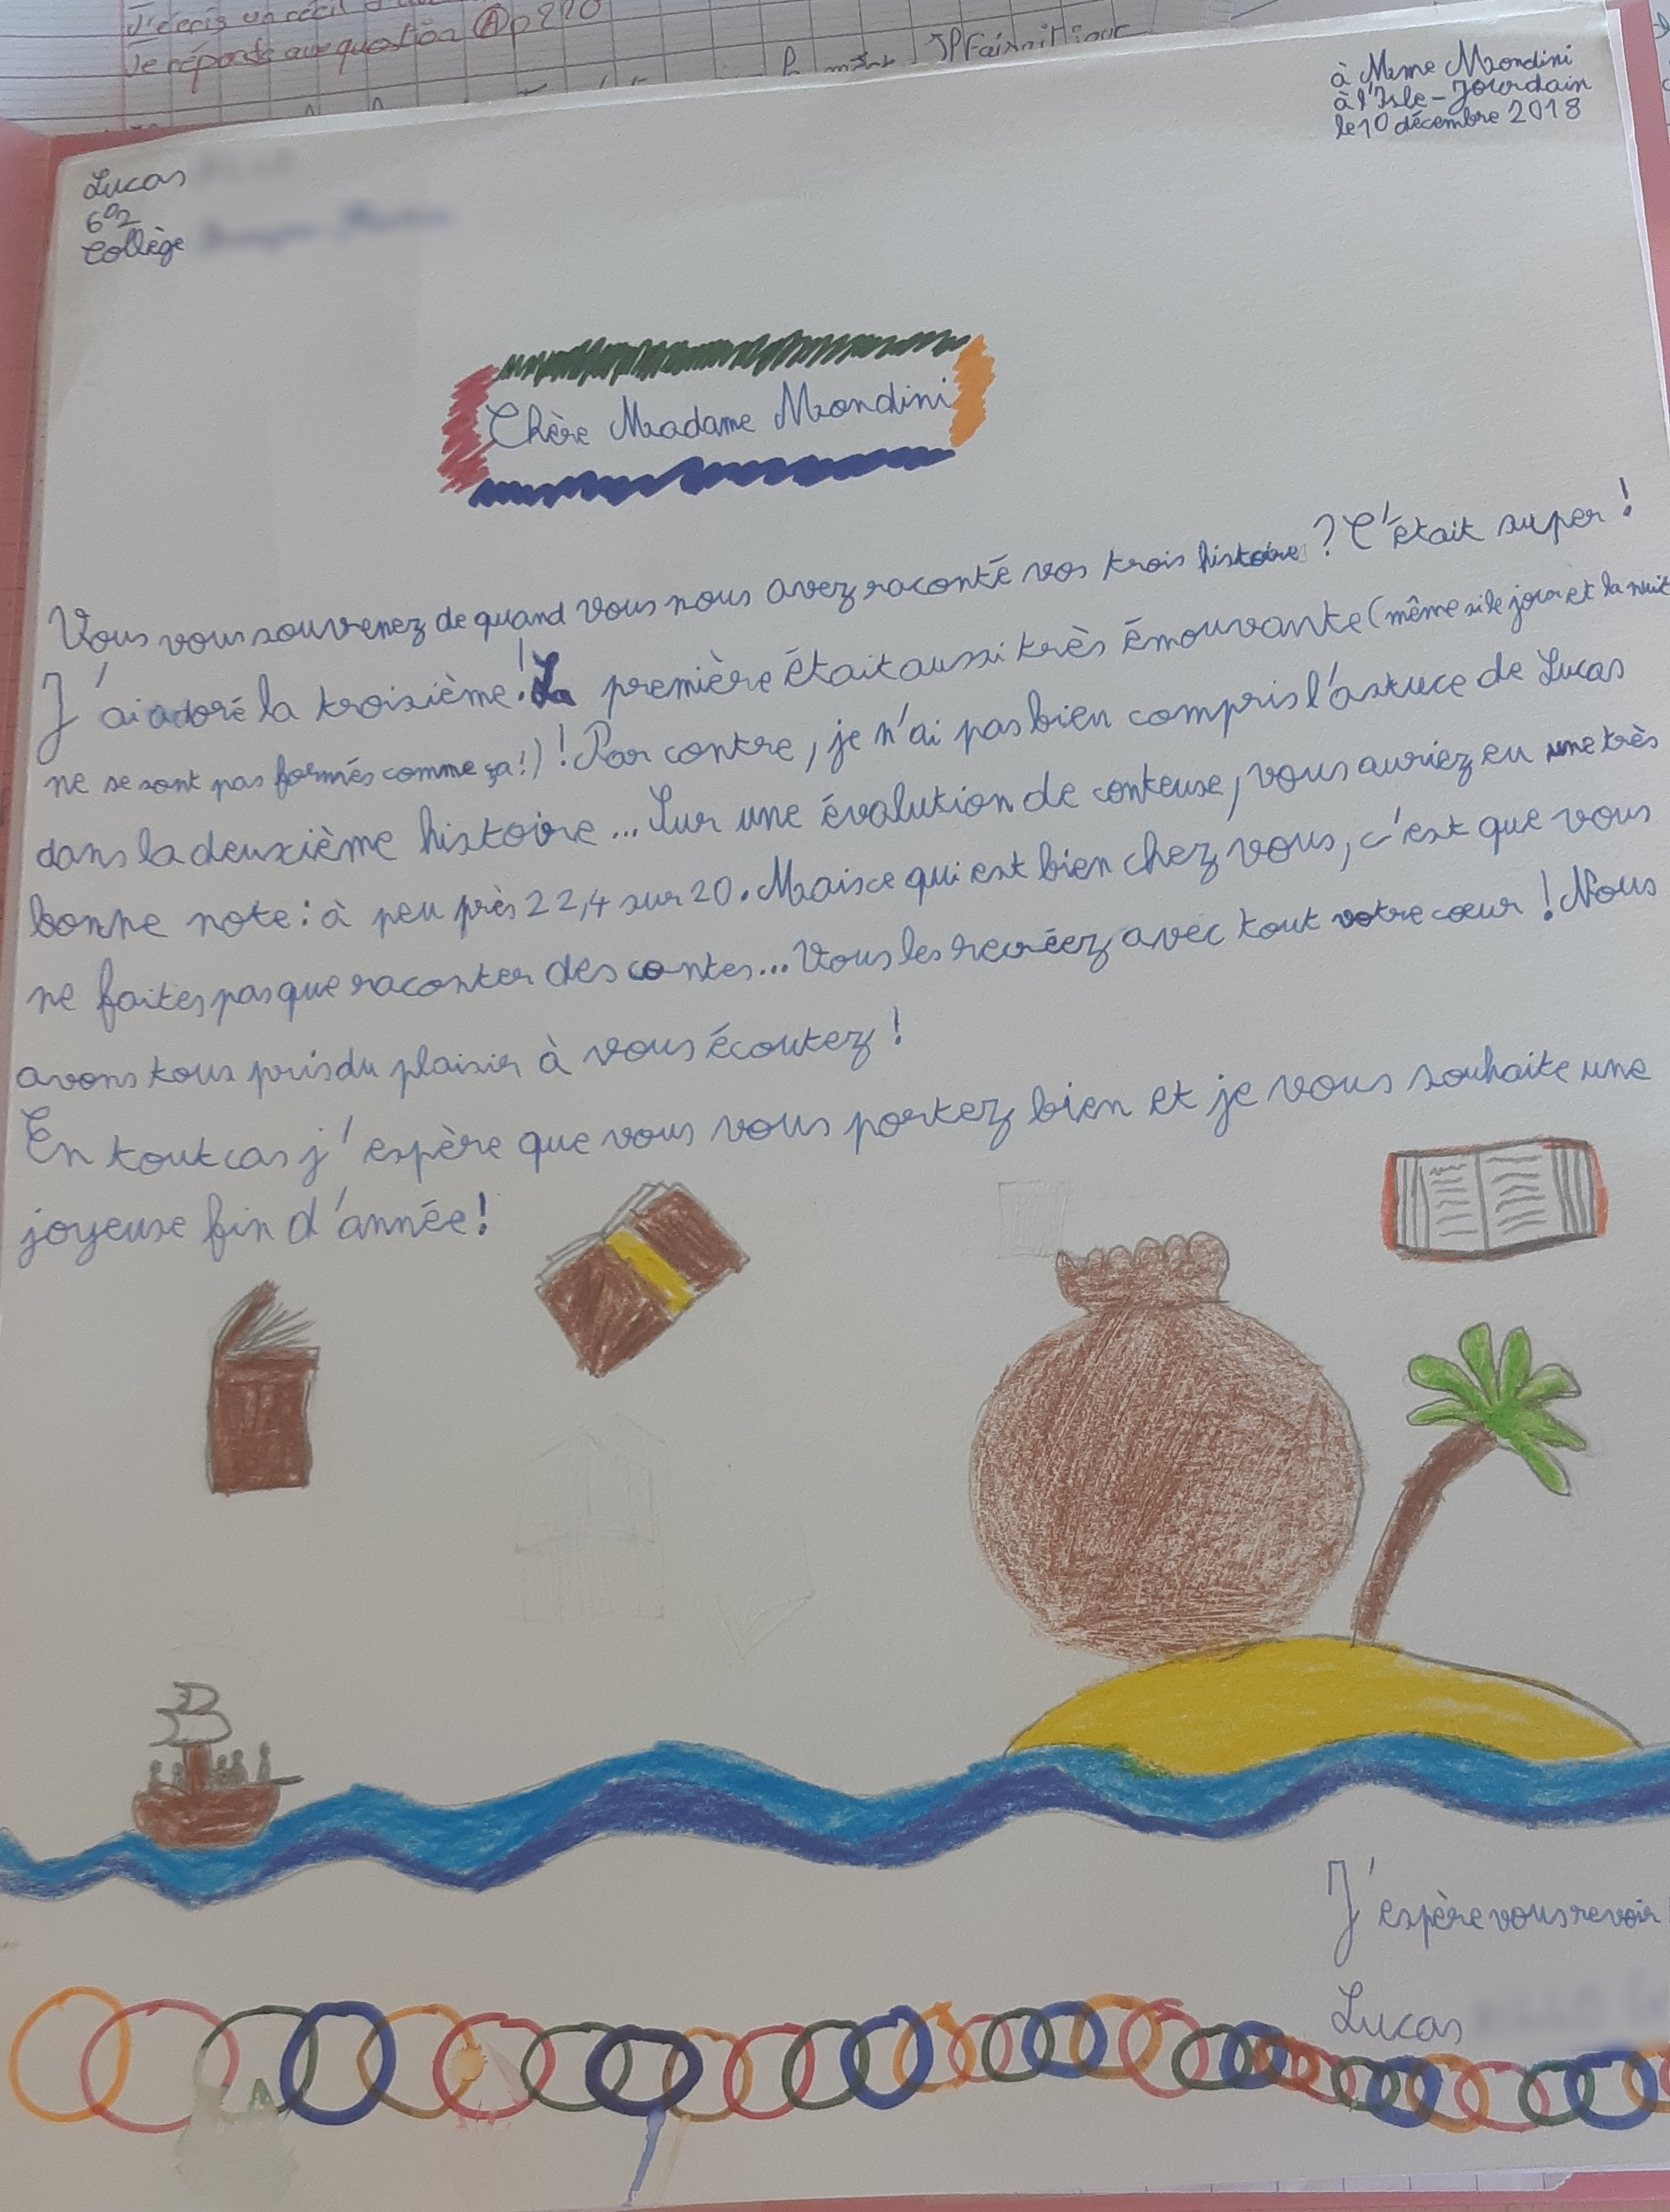 J'écris un récit
Je réponds aux question A p 220
à Mme Mondini
à l'Isle-Jourdain
le 10 décembre 2018
Lucas
6°2
Collège
Chère Madame Mondini
Vous vous souvenez de quand vous nous avez raconté vos trois histoire ? C'était super !
J'ai adoré la troisième ! La première était aussi très émouvante (même si le jour et la nuit
ne se sont pas formés comme ça !) ! Par contre, je n'ai pas bien compris l'astuce de Lucas
dans la deuxième histoire... Sur une évalution de conteuse, vous auriez eu une très
bonne note : à peu près 22,4 sur 20. Mais ce qui est bien chez vous, c'est que vous
ne faites pas que raconter des contes... Vous les recréez avec tout votre cœur ! Nous
avons tous pris du plaisir à vous écoutez !
En tout cas j'espère que vous vous portez bien et je vous souhaite une
joyeuse fin d'année !
J'espère vous revoir
Lucas